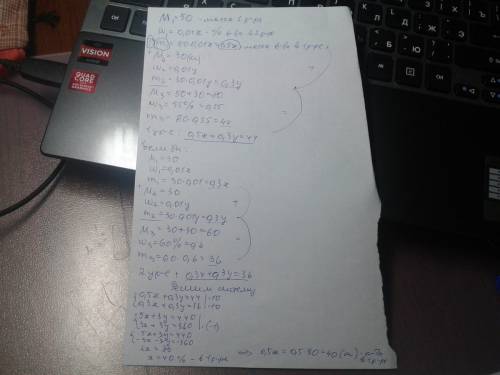 M₁=50 - масса 1 р-ра
w₁=0,01x - % в-ва в 1 р-ре
m₁=50·0,01x=0,5x масса в-ва в 1 р-ре
+M₂=30 (кг)
w₂=0,01y
m₂=30·0,01y=0,3y
M₃=50+30=80
w₃=55%=0,55
m₃=80·0,55=44
1 ур-е: 0,5x+0,3y=44
Если бы:
M₁=30
w₁=0,01x
m₁=30·0,01=0,3x
+M₂=30
w₂=0,01y
m₂=30·0,01y=0,3y
M₃=30+30=60
w₃=60%=0,6
m₃=60·0,6=36
2 ур-е: 0,3x+0,3y=36
Решим систему
{0,5x+0,3y=44 |·10
{0,3x+0,3y=36 |·10
{5x+3y=440
{3x+3y=360 |·(-1)
{5x+3y=440
{-3x-3y=-360
2x=80
x=40% - в 1 р-ре
VISION
AMD
QUAD CORE